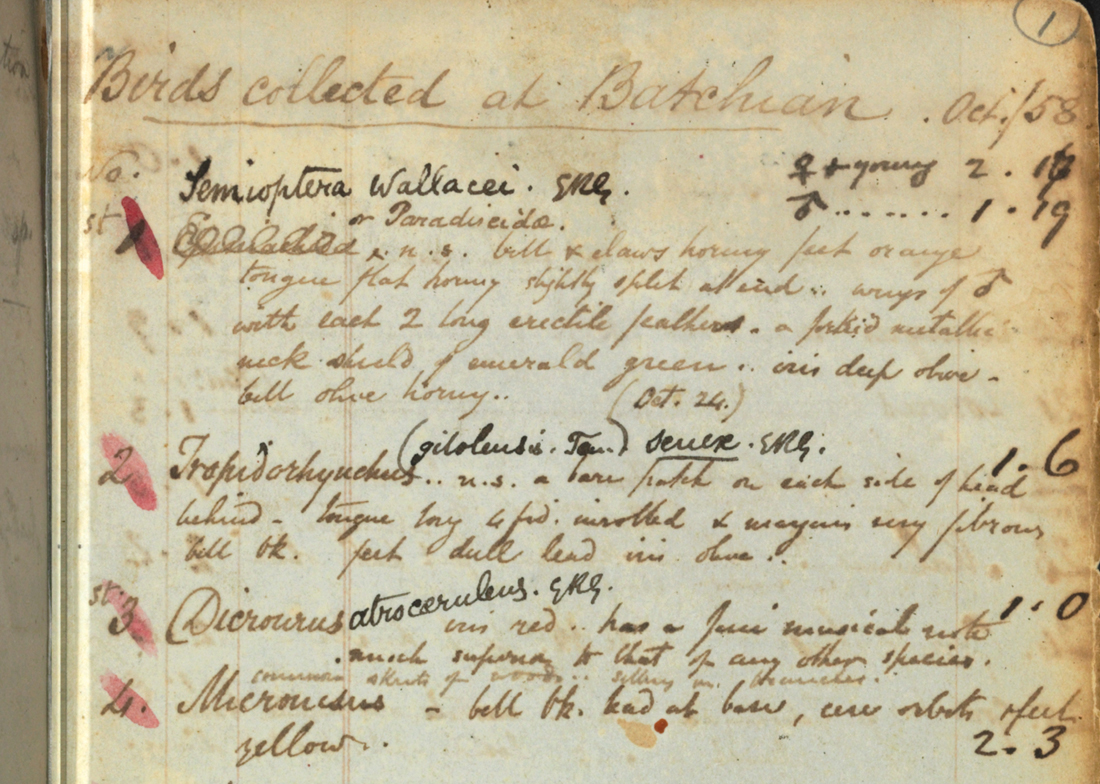 1
Birds collected at Batchian. Oct./58
No. Semioptera Wallacei. GRG. ♀ + young 2.
♂ ....... 1 . 19
or Paradiseidæ.
st 1 n.s. bill & claws horny feet orange
tongue flat horny slightly split at end.. wings of ♂
with each 2 long erectile feathers. a forkèd metallic
neck shield of emerald green.. iris deep olive -
bill olive horny.. (Oct. 24.)
(gilolensis. Tem.) senex. GRG.
2 Tropidorhynchus.. n.s. a bare patch on each side of head 1. 6
behind - tongue long 4fid. inrolled & margins very fibrous
bill bk. feet dull lead iris olive..
st. 3. Dicrourus atrocæruleus. GRG. 1. 0
iris red.. has a fine musical note
much superior to that of any other species.
common skirts of woods.. sitting on branches.
4. Micronisus - bill bk. lead at base, cere orbits & feet
yellow.. 2. 3